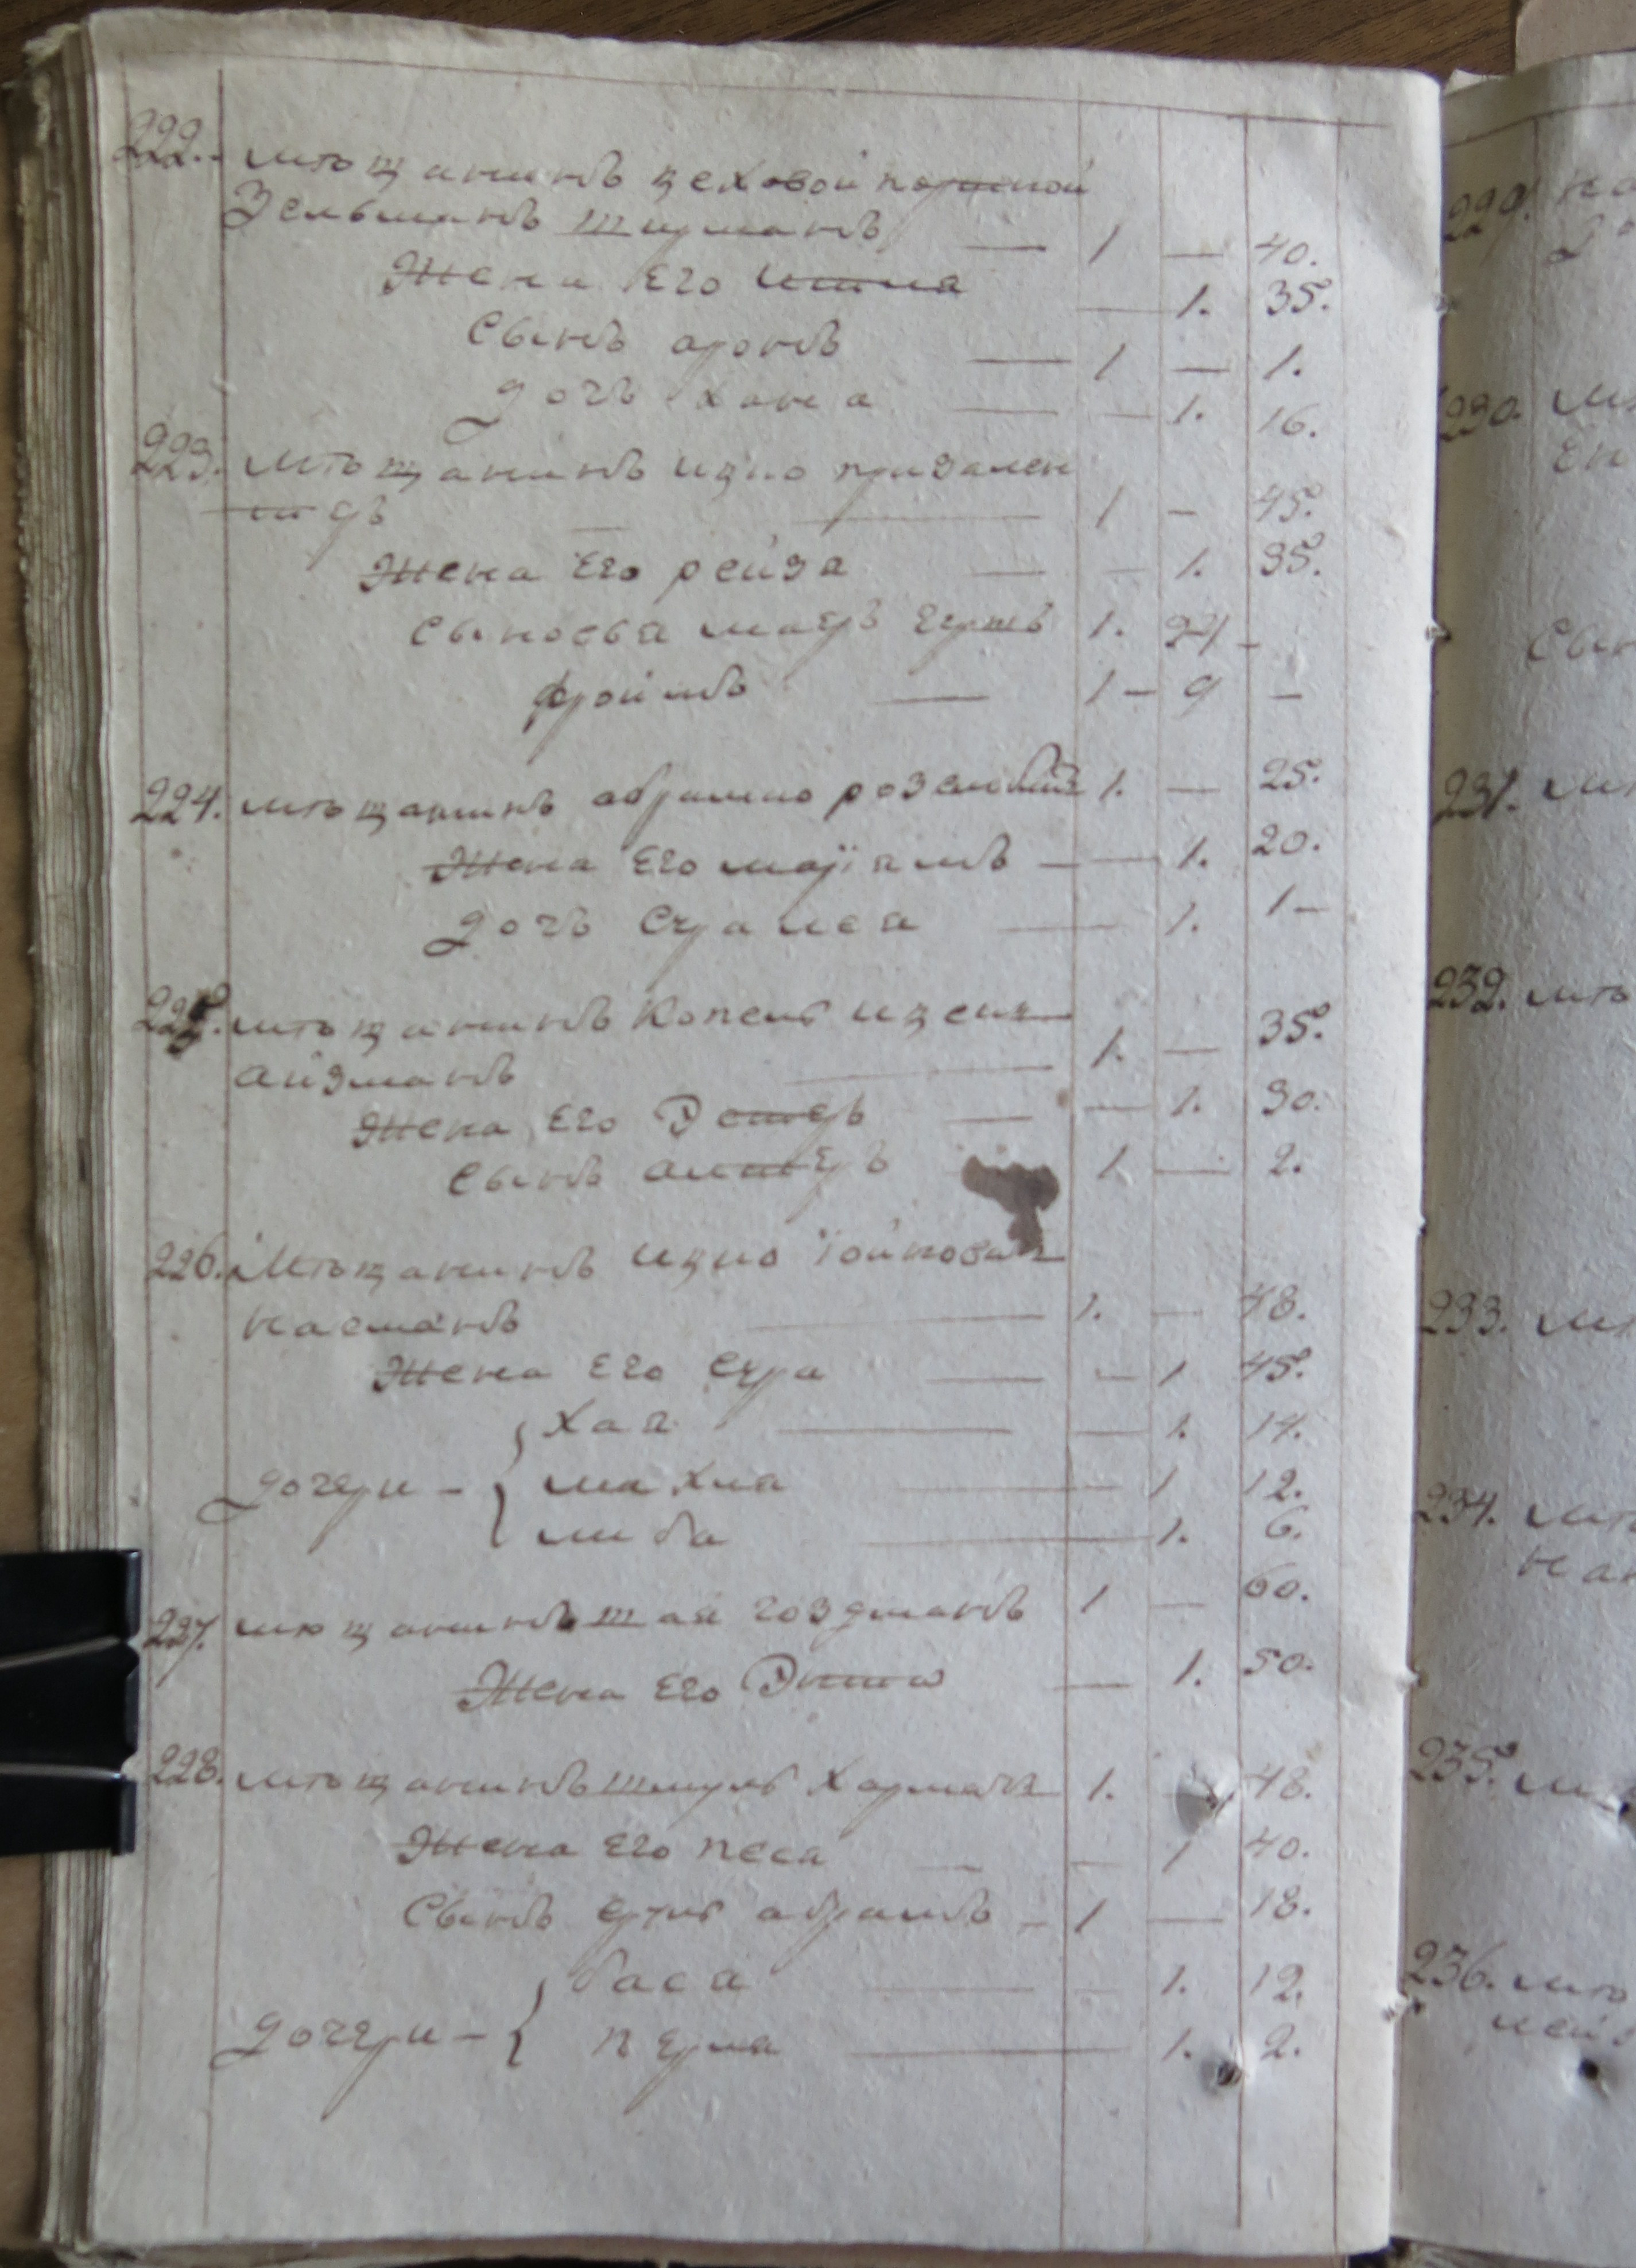 222. мѣщанинъ цеховой портной
Зельманъ шурманъ — 1 — 40.
Жена Его итта — 1. 35.
Сынъ аронъ — 1 — 1.
дочь хана — — 1. 16.
223. мѣщанинъ ицко призамен
штдъ — 1 — 45.
Жена Его рейза — — 1. 35.
Сыновья маеръ гершъ 1. 24 —
фроимъ — 1 — 9 —
224. мѣщанинъ абрамко розенблитъ 1. — 25.
Жена Его марїямъ — — 1. 20.
дочь Сураиса — 1. 1 —
225. мѣщанинъ Копель ицеих
айзманъ — 1. — 35.
Жена Его Эстеръ — — 1. 30.
Сынъ алтеръ — 1 — 2.
226. Мѣщанинъ ицко їойновал
насманъ — 1. — 48.
Жена Его Сура — — 1 45.
хая — — 1. 14.
дочери — малка — 1 12.
либа — 1. 6.
227. мѣщанинъ шая гоздманъ 1 — 60.
Жена Его Энта — 1. 50.
228. мѣщанинъ шмуль хармачъ 1. — 48.
Жена Его песа — — 1 40.
Сынъ Срулъ абрамъ — 1 — 18.
баса — — 1. 12.
дочери — перла — 1. 2.
229.
230.
231.
232. мѣ
233.
234.
235.
236. мѣ